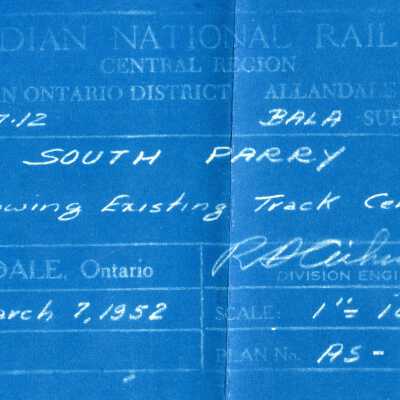 DIAN NATIONAL RAIL
CENTRAL REGION
N ONTARIO DISTRICT ALLANDALE
7.12 BALA SUB
SOUTH PARRY
owing Existing Track Cen
DALE, Ontario
DIVISION ENGI
arch 7, 1952 SCALE: 1"= 10
PLAN No. AS-